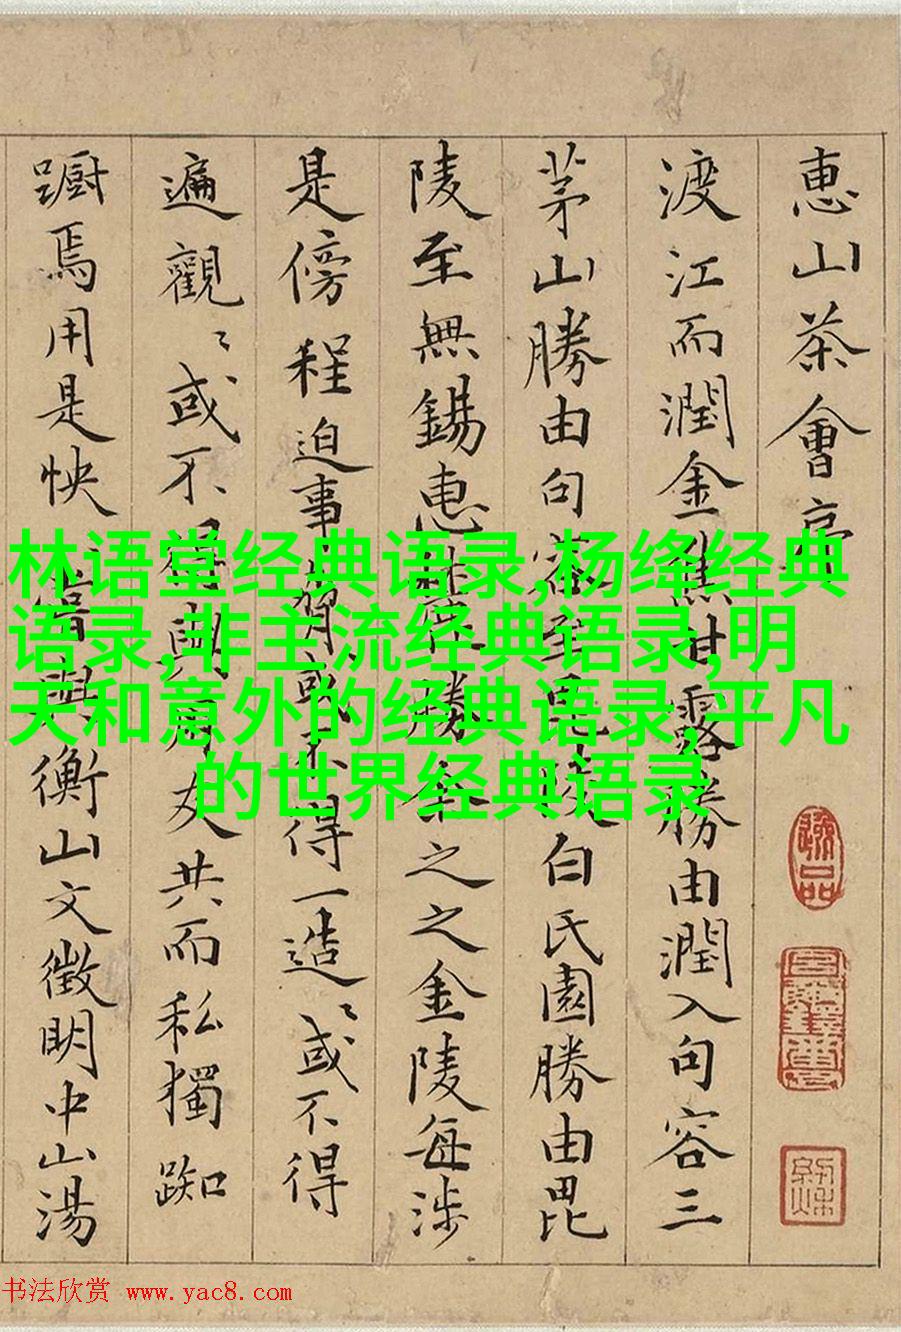 惠山茶會序
渡江而潤金焦甘露勝由潤入句容三
茅山勝由句容至毘陵白氏園勝由毘
陵至無錫惠山勝余之之金陵每涉
是傍程迫事有或不得一造〻或不得
遍觀〻或不得與友共而私獨踟
蹰焉用是怏與衡山文徵明中山湯
林语堂经典语录,杨绛经典
语录,非主流经典语录,明
天和意外的经典语录,平凡
的世界经典语录
书法欣赏 www.yac8.com